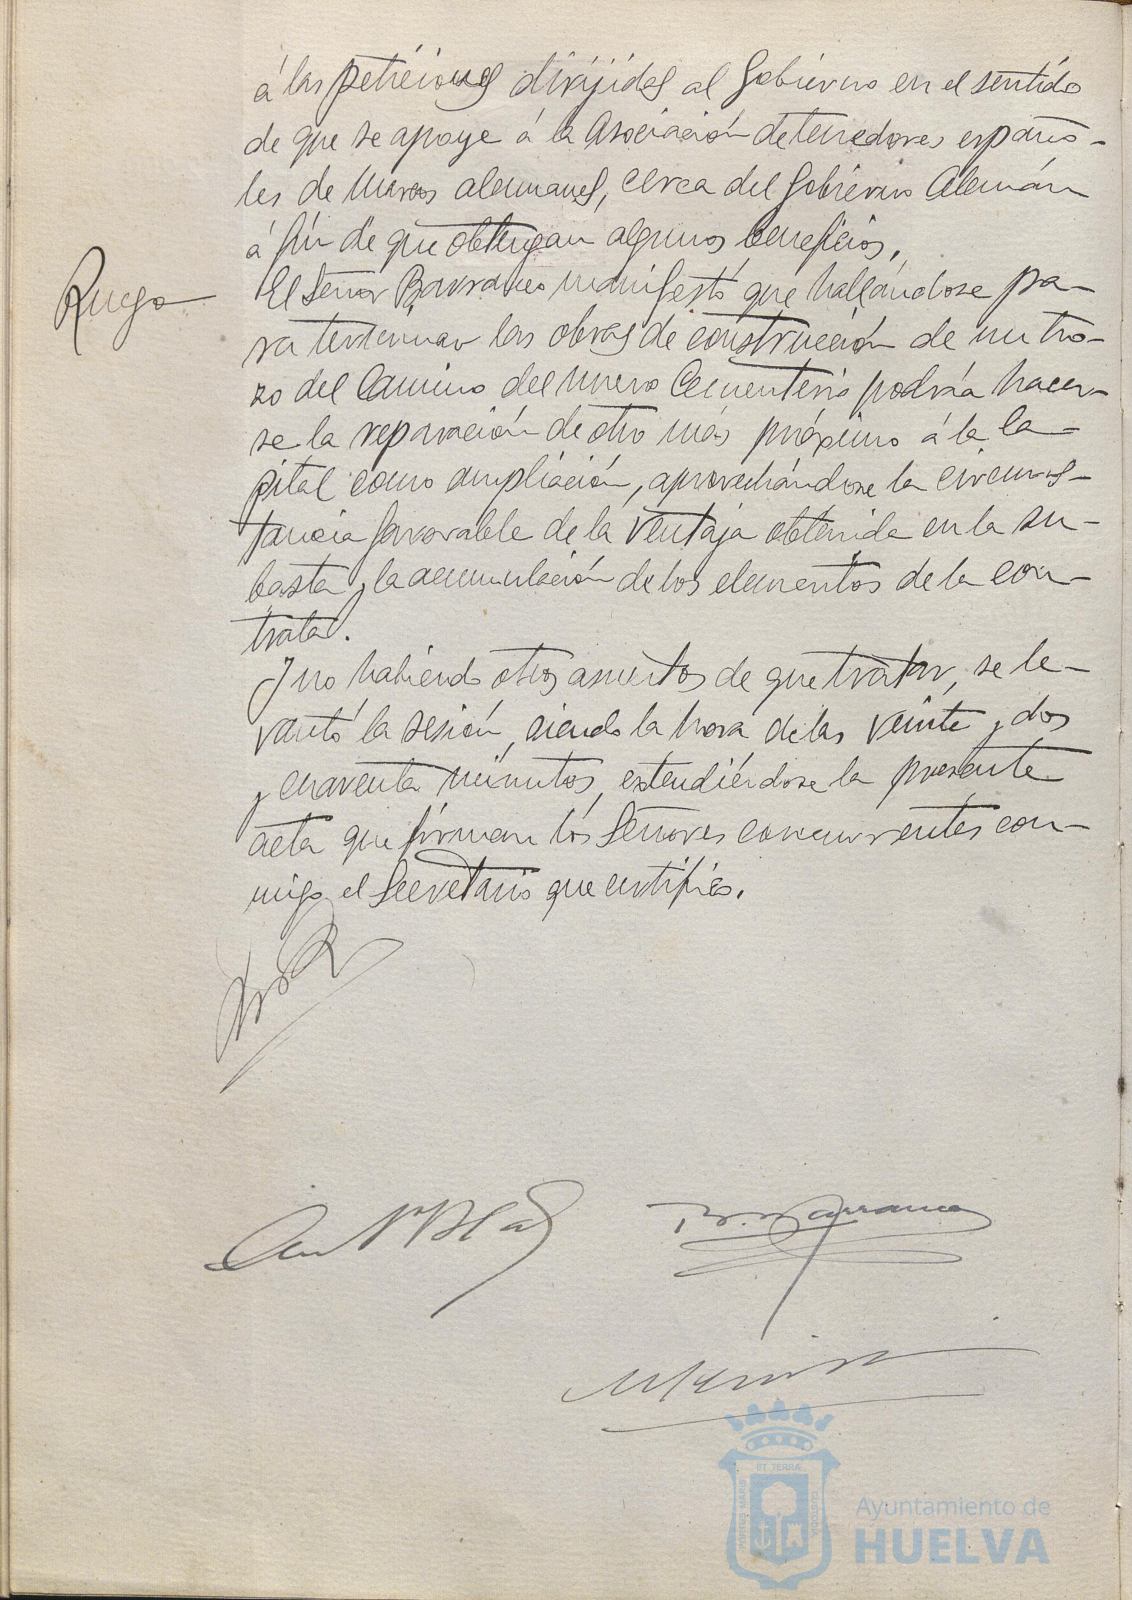 á las peticiones dirijidas al Gobierno en el sentido
de que se apoye á la Asociación de tenedores españo-
les de Marcos alemanes, cerca del Gobierno Alemán
á fin de que obtengan algunos beneficios.
Ruego
El Señor Barranco manifestó que hallándose pa-
ra terminar las obras de construcción de un tro-
zo del Camino del nuevo Cementerio podría hacer-
se la reparación de otro más próximo á la Ca-
pital como ampliación, aprovechándose la circuns-
tancia favorable de la ventaja obtenida en la su-
basta y la acumulación de los elementos de la con-
trata.
Y no habiendo otros asuntos de que tratar, se le-
vantó la sesión, siendo la hora de las veinte y dos
y cuarenta minutos, extendiéndose la presente
acta que firman los Señores concurrentes con-
migo el Secretario que certifico.
Barranco
PORTUS MARIS
ET TERRÆ
CUSTODIA
Ayuntamiento de
HUELVA